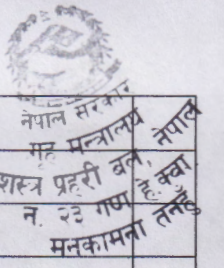 नेपाल सरकार
गृह मन्त्रालय
शस्त्र प्रहरी बल, नेपाल
न. २३ गण हे.क्वा
मनकामना तनहुँ